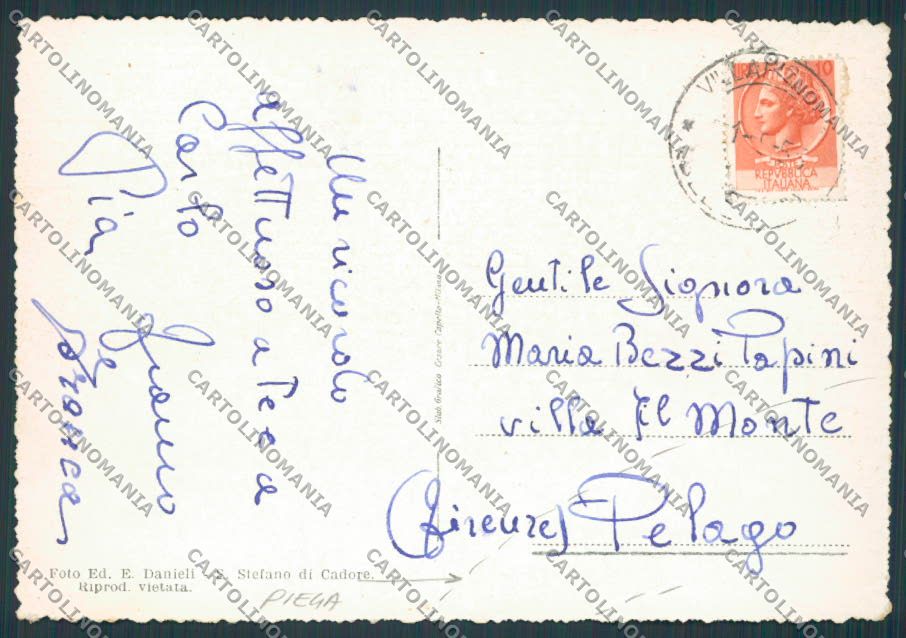 Un ricordo
affettuoso a Te e a
Carlo
Pia
e Bianca
VILLAP
10
POSTE
REPVBBLICA
ITALIANA
Gentile Signora
Maria Bezzi Papini
villa Il Monte
(Firenze) Pelago
Stab Grafico Cesare Capello-Milano
Foto Ed. E. Danieli - S. Stefano di Cadore.
Riprod. vietata.
PIEGA
CARTOLINOMANIA